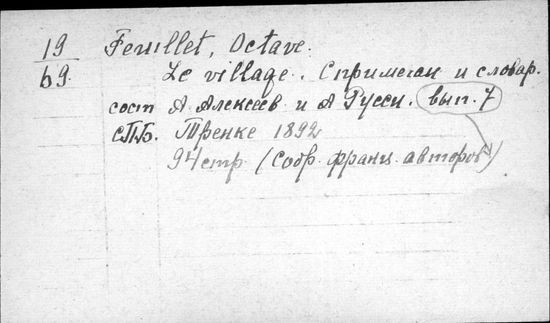 19
69
Feuillet, Octave.
Le village. С примечан и словар.
сост А. Алексеев и А Русси. вып. 7
СПБ. Тренке 1892
94 стр. (Собр. франц. авторов)